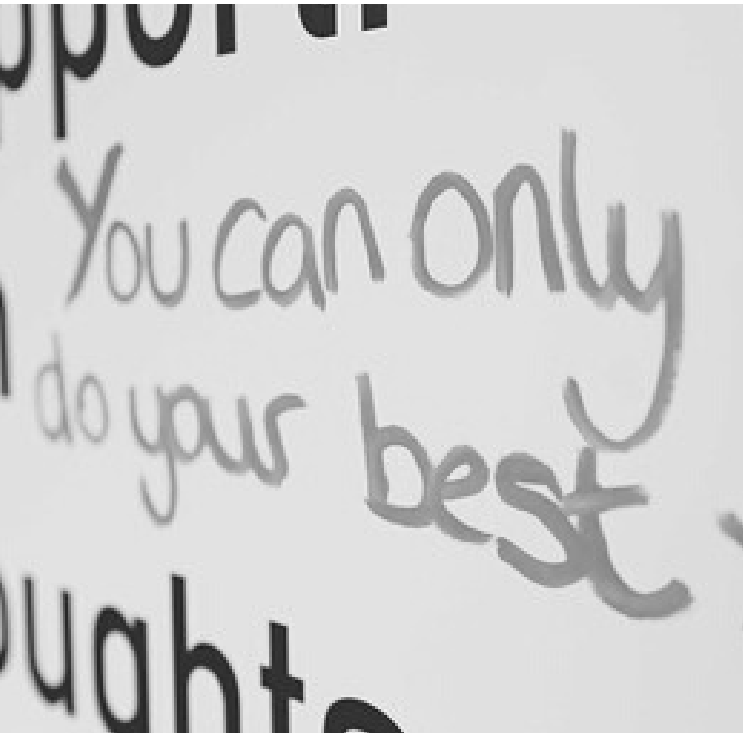 You can only
do your best